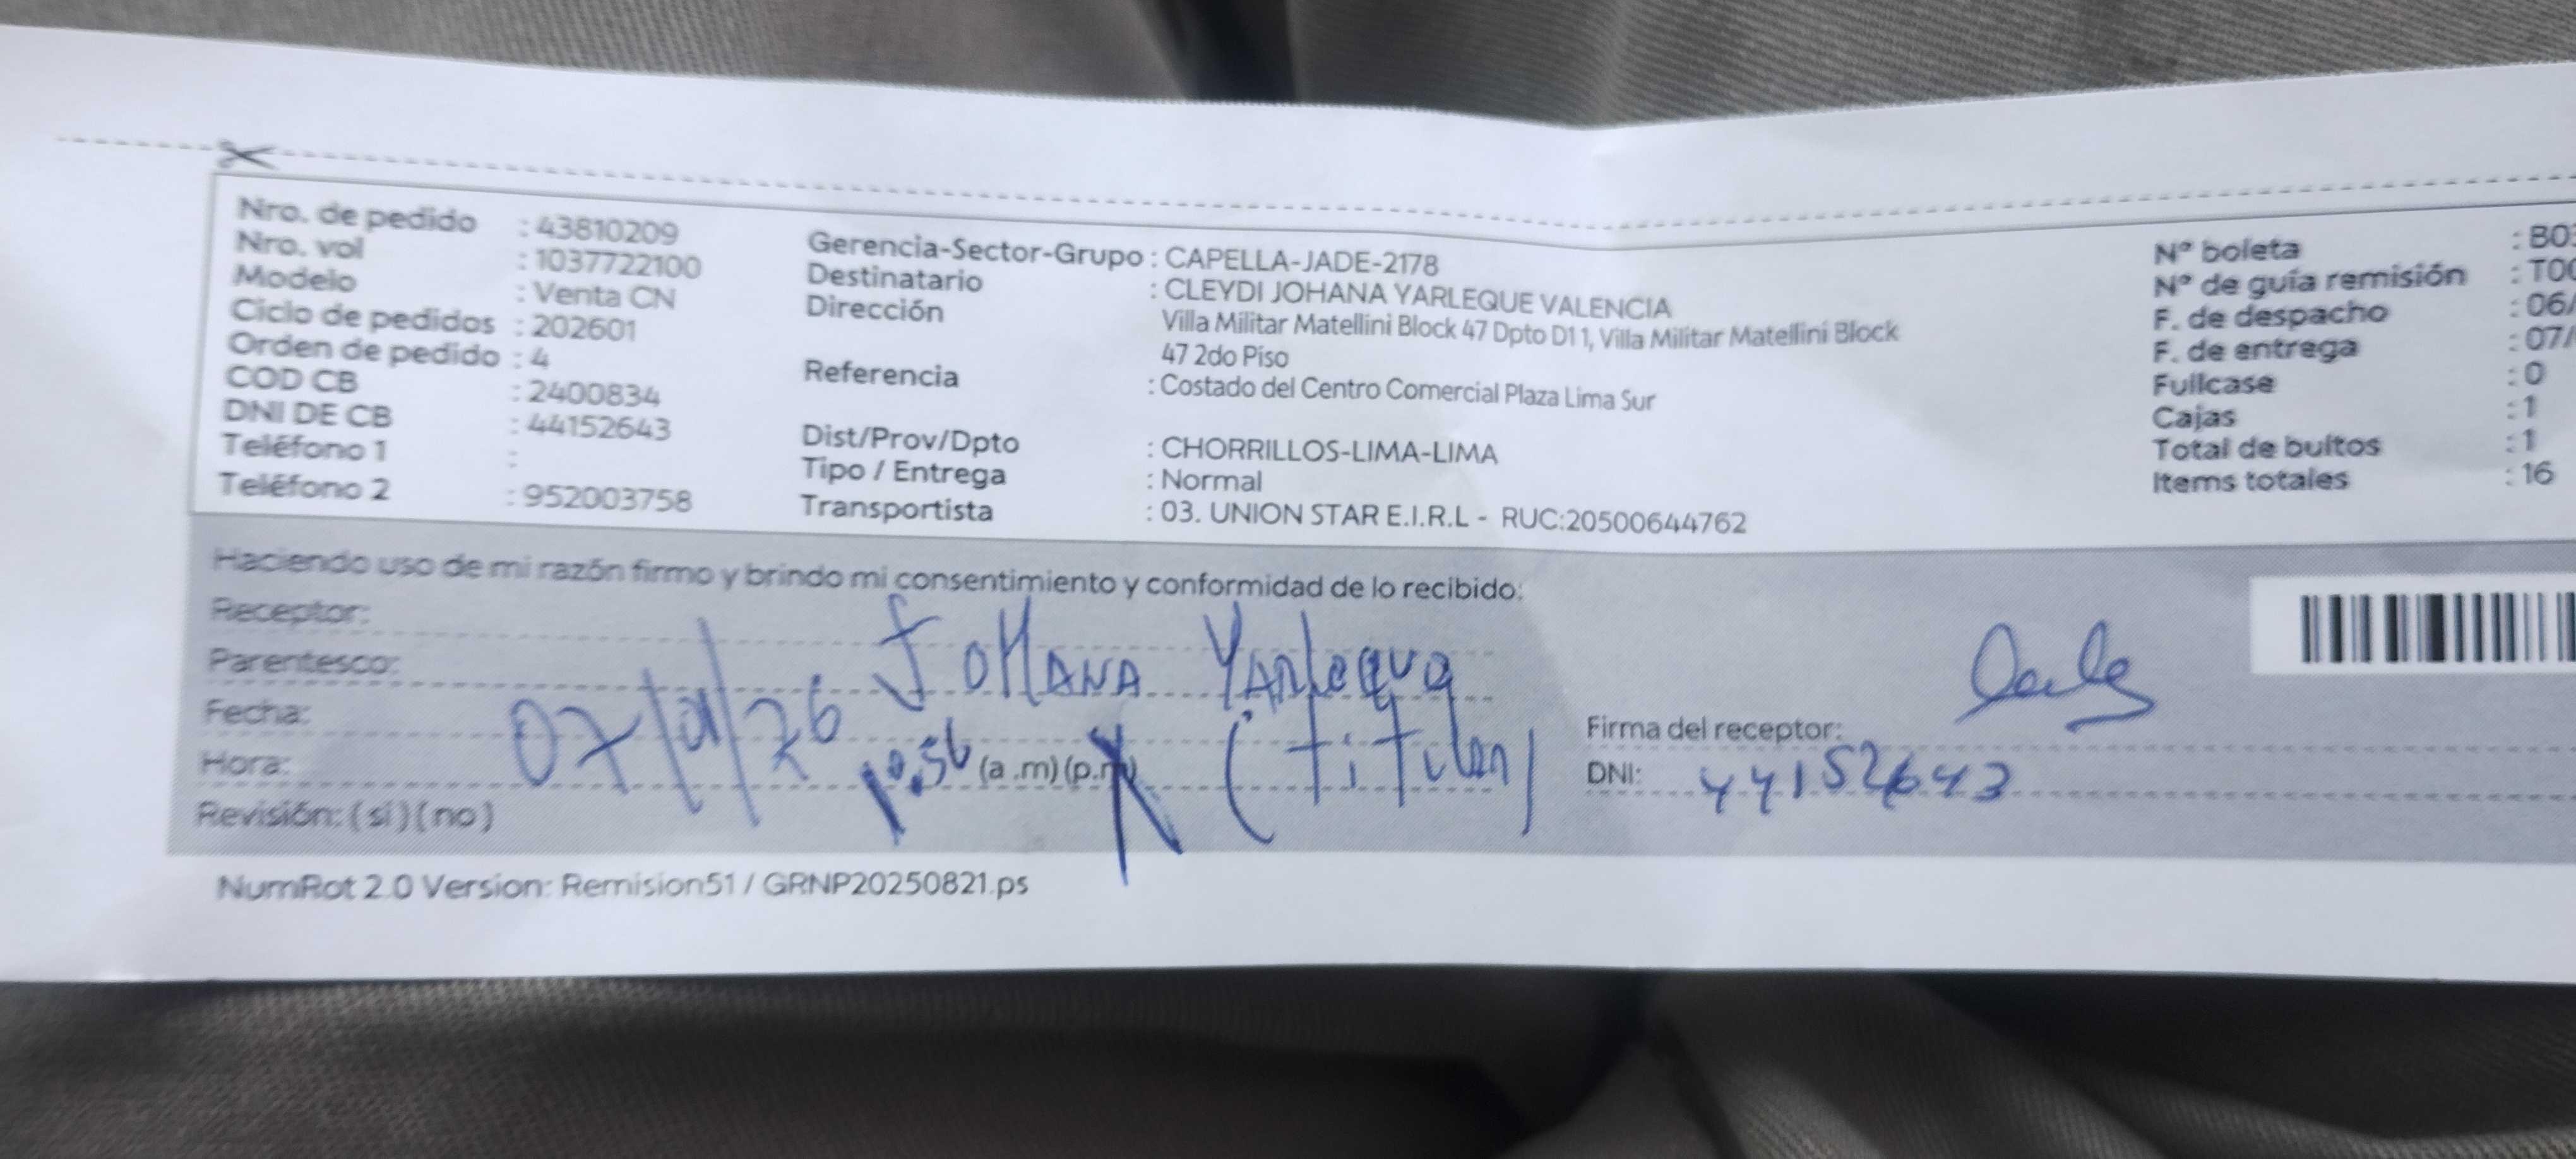 Nro. de pedido : 43810209
Nro. vol : 1037722100
Modelo : Venta CN
Ciclo de pedidos : 202601
Orden de pedido : 4
COD CB : 2400834
DNI DE CB : 44152643
Teléfono 1 :
Teléfono 2 : 952003758
Gerencia-Sector-Grupo : CAPELLA-JADE-2178
Destinatario : CLEYDI JOHANA YARLEQUE VALENCIA
Dirección Villa Militar Matellini Block 47 Dpto D11, Villa Militar Matellini Block
47 2do Piso
Referencia : Costado del Centro Comercial Plaza Lima Sur
Dist/Prov/Dpto : CHORRILLOS-LIMA-LIMA
Tipo / Entrega : Normal
Transportista : 03. UNION STAR E.I.R.L - RUC:20500644762
Nº boleta : B03
Nº de guía remisión : T00
F. de despacho : 06/
F. de entrega : 07/
Fullcase : 0
Cajas : 1
Total de bultos : 1
Items totales : 16
Haciendo uso de mi razón firmo y brindo mi consentimiento y conformidad de lo recibido:
Receptor: JoHANA Yarleque
Parentesco: (titular)
Fecha: 07/01/26
Hora: 10:56 (a .m) (p.m)
Revisión: ( si ) ( no )
Firma del receptor:
DNI: 44152643
NumRot 2.0 Version: Remision51 / GRNP20250821.ps